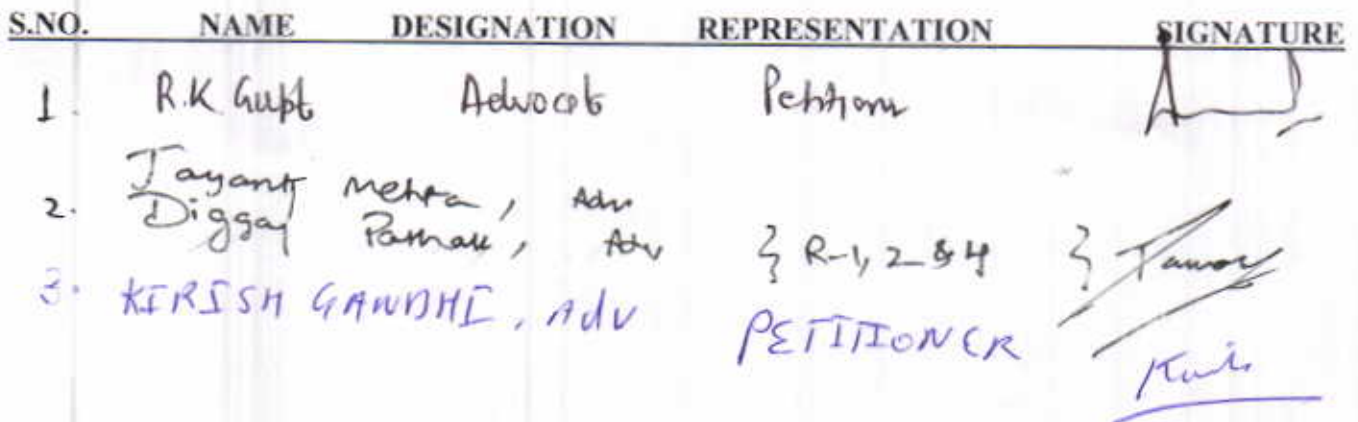 S.NO. NAME DESIGNATION REPRESENTATION SIGNATURE
1. R.K Gupt Advocate Petitioner
2. Jayant Mehta, Adv
Diggaj Pathak, Adv } R-1, 2 & 4 }
3. KIRISH GANDHI, Adv PETITIONER